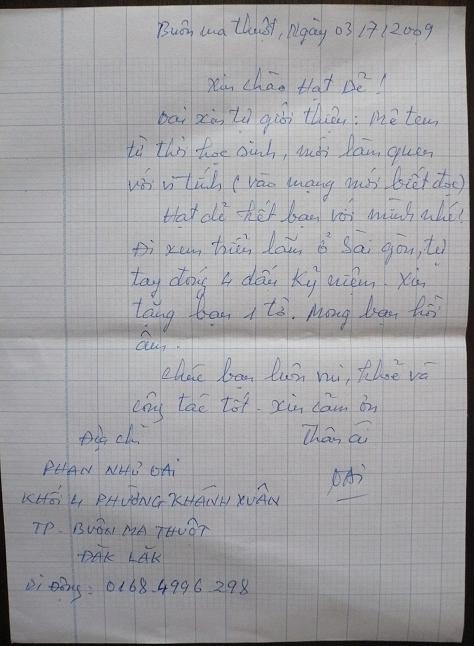 Buôn ma thuột, Ngày 03/7/2009
Xin chào Hạt Dẻ!
Đại xin tự giới thiệu: Mê tem
từ thời học sinh, mới làm quen
với vi tính (vào mạng mới biết đọc)
Hạt dẻ kết bạn với mình nhé!
Đi xem triển lãm ở Sài gòn, tự
tay đóng 4 dấu Kỷ niệm. Xin
tặng bạn 1 tờ. Mong bạn hồi
âm.
Chúc bạn luôn vui, khoẻ và
công tác tốt. Xin cảm ơn
Địa chỉ
Thân ái
PHAN NHƯ ĐẠI
ĐẠI
KHỐI 4 PHƯỜNG KHÁNH XUÂN
TP - BUÔN MA THUỘT
ĐĂK LĂK
Di Động: 0168.4996.298